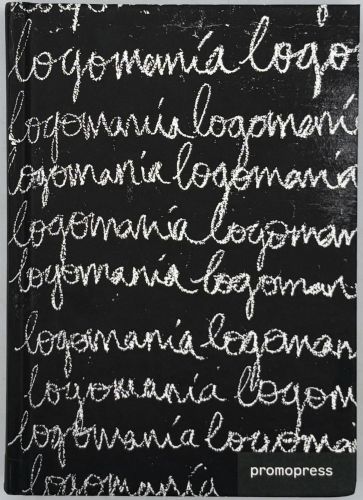 logomanía logo
logomanía logomaní
logomanía logomanía
logomanía logoman
logomanía logoman
logomanía logoman
logomanía logom
logomanía logoman
logomanía
promopress